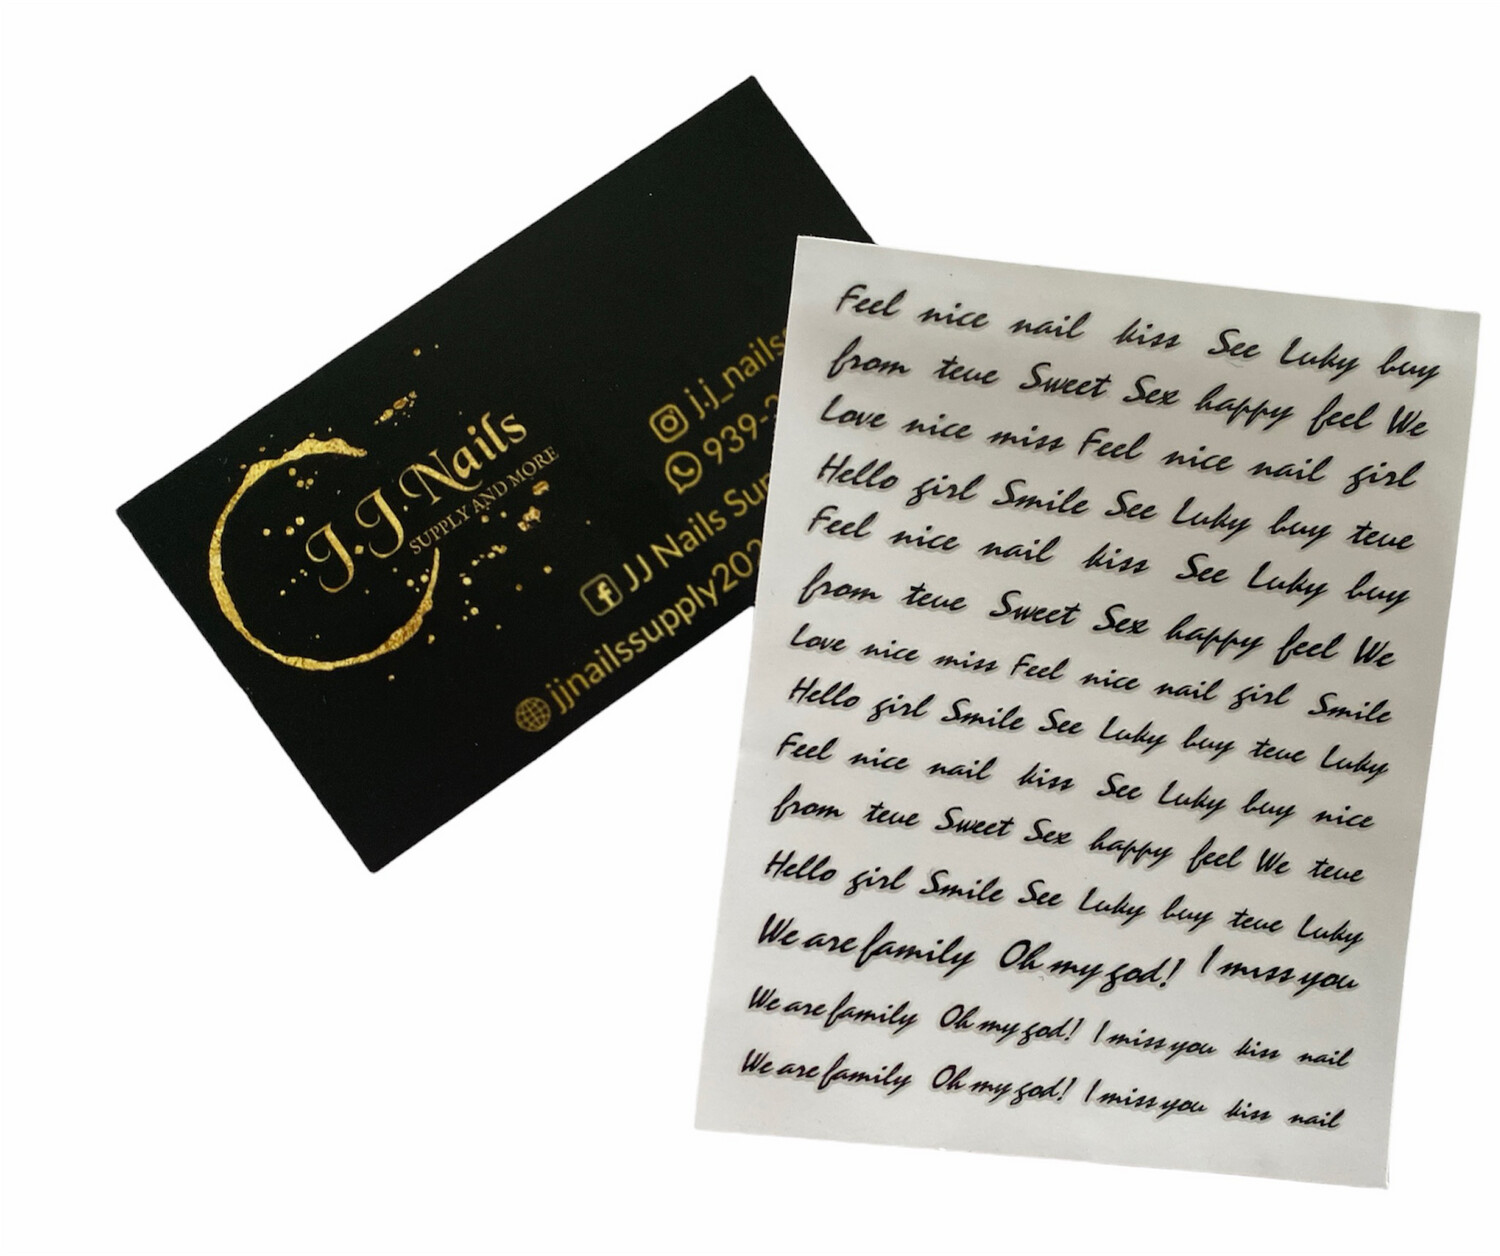 J.J Nails
SUPPLY AND MORE
j.j_nails
939-
JJ Nails Sup
jjnailssupply202
Feel nice nail kiss See Luky buy
from teue Sweet Sex happy feel We
Love nice miss Feel nice nail girl
Hello girl Smile See Luky buy teue
Feel nice nail kiss See Luky buy
from teue Sweet Sex happy feel We
Love nice miss Feel nice nail girl Smile
Hello girl Smile See Luky buy teue Luky
Feel nice nail kiss See Luky buy nice
from teue Sweet Sex happy feel We teue
Hello girl Smile See Luky buy teue Luky
We are family Oh my god! I miss you
We are family Oh my god! I miss you kiss nail
We are family Oh my god! I miss you kiss nail